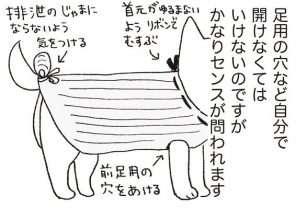 足用の穴など自分で
開けなくては
いけないのですが
かなりセンスが問われます
首元がゆるまない
よう リボンで
むすぶ
排泄のじゃまに
ならないよう
気をつける
前足用の
穴をあける